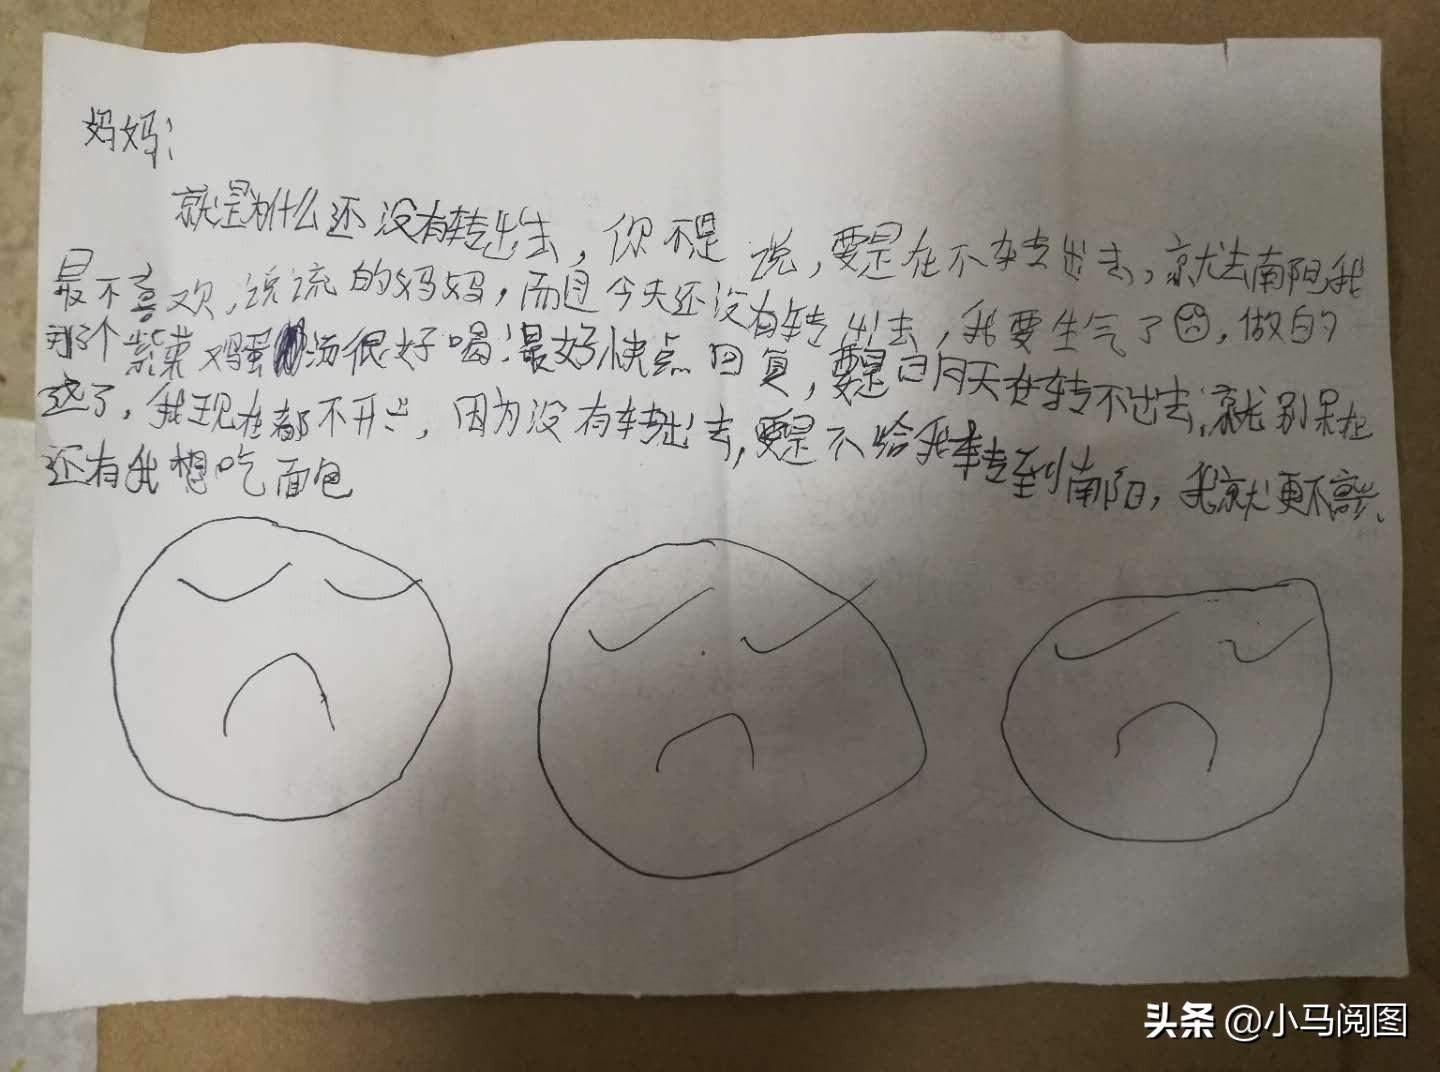 妈妈：
就是为什么还没有转出去，你不是说，要是在不转出去，就去南阳，我
最不喜欢，说谎的妈妈，而且今天还没有转出去，我要生气了，做的
那个紫菜鸡蛋汤很好喝！最好快点回复，要是明天在转不出去，就别呆在
这了，我现在都不开心，因为没有转出去，要是不给我转到南阳，我就更不高兴、
还有我想吃面包
头条 @小马阅图